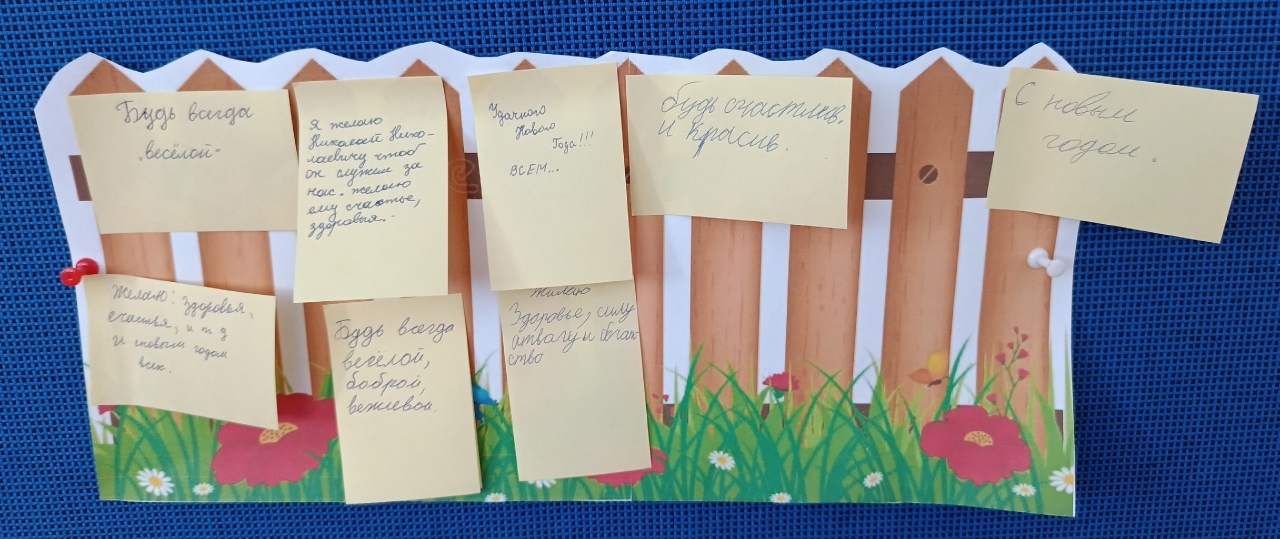 Будь всегда
"весёлой"
Я желаю
Николай Нико-
лаевичу чтоб
он служил за
нас. желаю
ему счастье,
здоровья.
Удачного
Нового
Года!!!
ВСЕМ...
будь счастлив.
и красив.
С новым
годом.
Желаю: здоровья,
счастья, и т д
И сновым годом
всех.
Будь всегда
весёлой,
боброй,
вежлевой.
Желаю
Здоровье, силу
атвагу и богат
ство